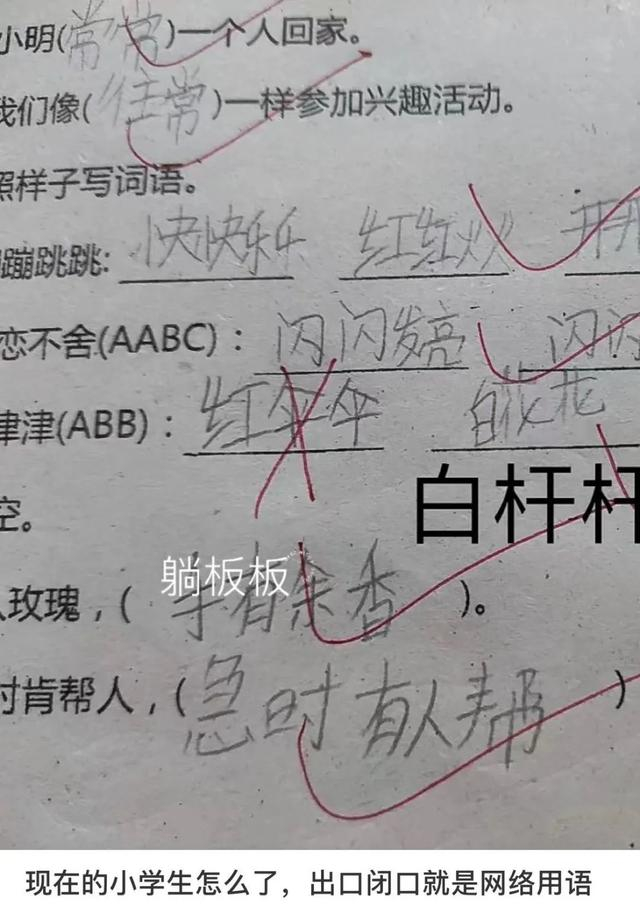 小明(常常)一个人回家。
我们像(往常)一样参加兴趣活动。
照样子写词语。
蹦跳跳: 快快乐乐 红红火火 开开
恋不舍(AABC)：闪闪发亮 闪闪
津津(ABB)：红伞伞 白花花
白杆杆
空。
躺板板
人玫瑰，( 手有余香 )。
时肯帮人，(急时有人帮)
现在的小学生怎么了，出口闭口就是网络用语